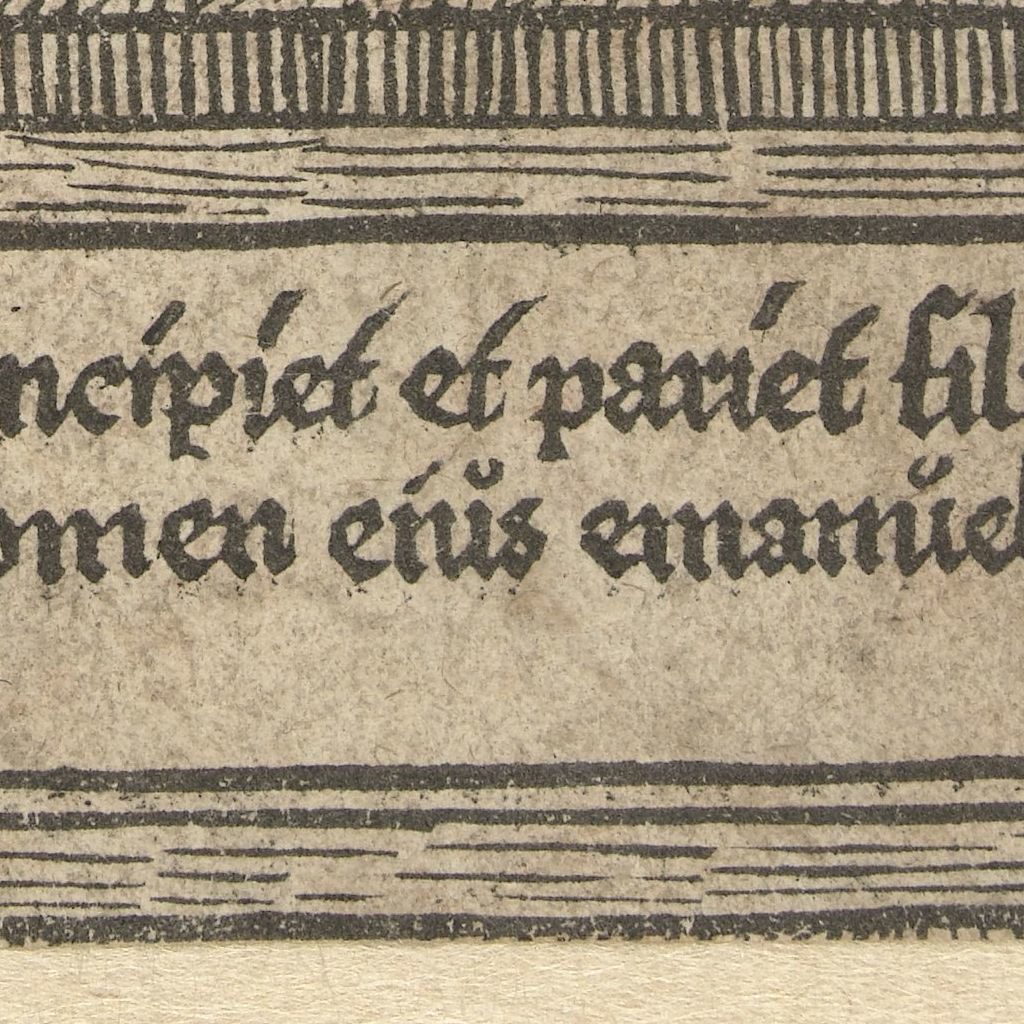 ncipiet et pariet fil
omen eiŭs emanŭel